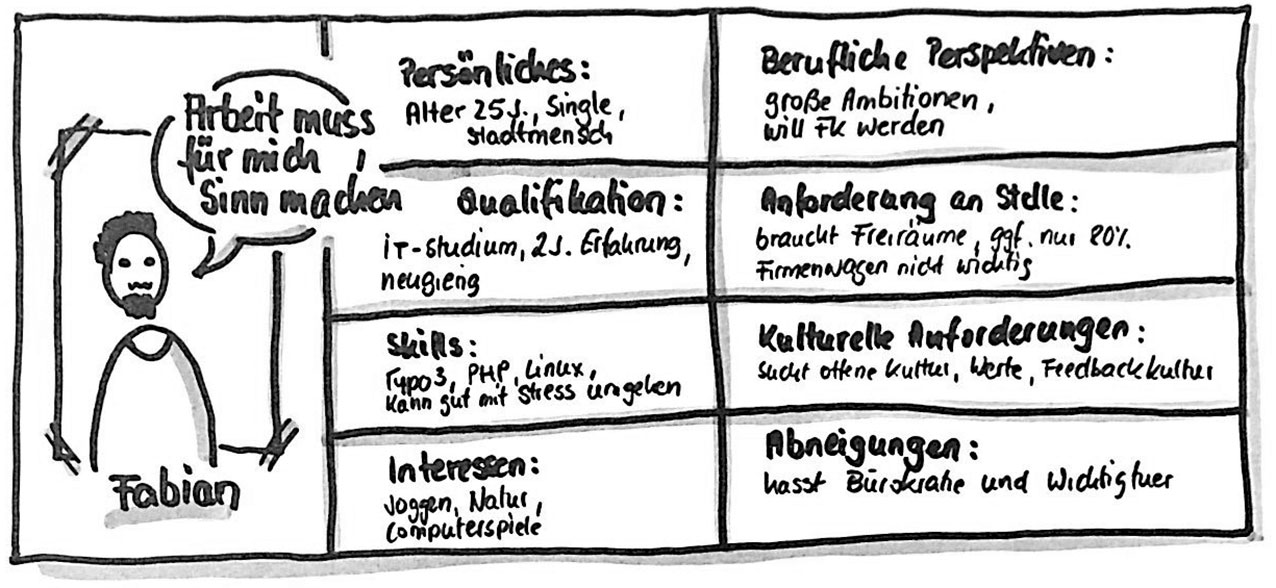 Arbeit muss
für mich
Sinn machen
Fabian
Persönliches:
Alter 25 J., Single,
Stadtmensch
Qualifikation:
IT-Studium, 2 J. Erfahrung,
neugierig
Skills:
Typo3, PHP, Linux,
kann gut mit Stress umgehen
Interessen:
Joggen, Natur,
Computerspiele
Berufliche Perspektiven:
große Ambitionen,
will FK werden
Anforderung an Stelle:
braucht Freiräume, ggf. nur 80%
Firmenwagen nicht wichtig
Kulturelle Anforderungen:
sucht offene Kultur, Werte, Feedbackkultur
Abneigungen:
hasst Bürokratie und Wichtigtuer